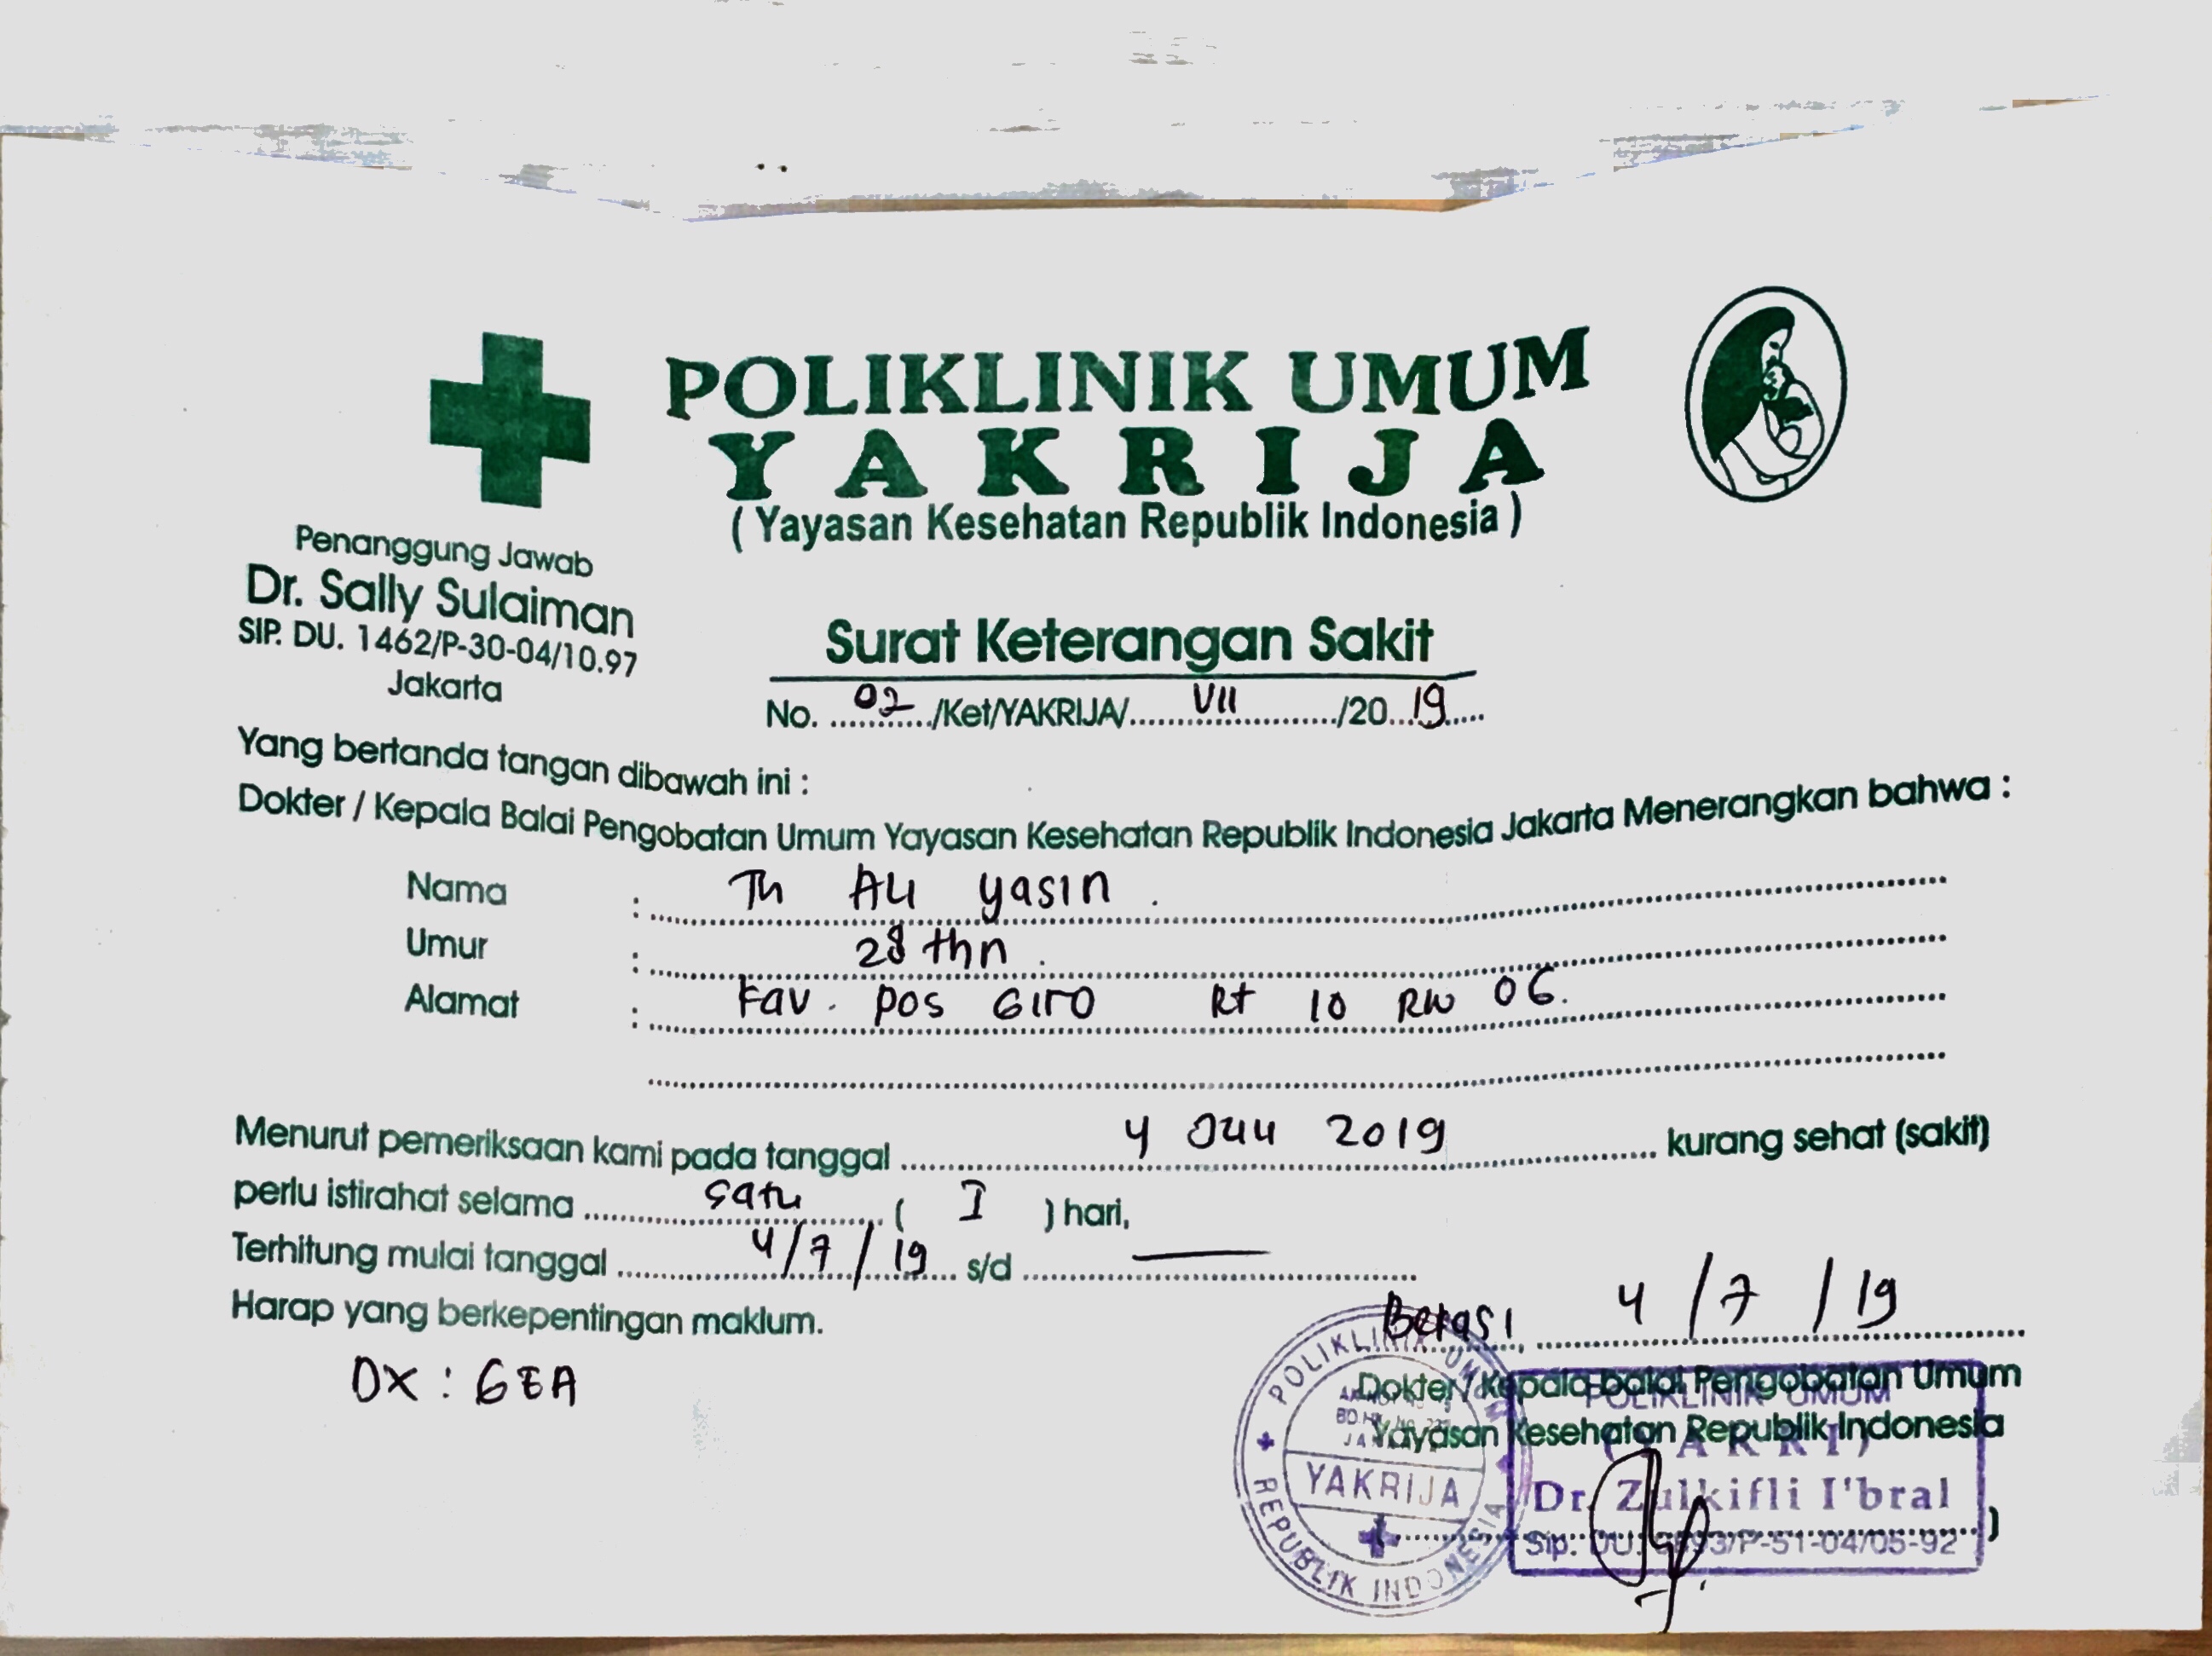 POLIKLINIK UMUM
YAKRIJA
( Yayasan Kesehatan Republik Indonesia )
Penanggung Jawab
Dr. Sally Sulaiman
SIP. DU. 1462/P-30-04/10.97
Jakarta
Surat Keterangan Sakit
No. 02 /Ket/YAKRIJA/ VII /20 19
Yang bertanda tangan dibawah ini :
Dokter / Kepala Balai Pengobatan Umum Yayasan Kesehatan Republik Indonesia Jakarta Menerangkan bahwa :
Nama : Tn Ali yasin .
Umur : 28 thn .
Alamat : Kav. pos Giro Rt 10 RW 06.
Menurut pemeriksaan kami pada tanggal 4 Juli 2019 kurang sehat (sakit)
perlu istirahat selama satu ( I ) hari,
Terhitung mulai tanggal 4/7/19 s/d —
Harap yang berkepentingan maklum.
DX : GEA
4/7/19
Dokter / Kepala balai Pengobatan Umum
Yayasan Kesehatan Republik Indonesia
POLIKLINIK UMUM
Dr. Zulkifli I'bral
Sip. DU. /P-51-04/05-92
POLIKLINIK UMUM
YAKRIJA
REPUBLIK INDONESIA